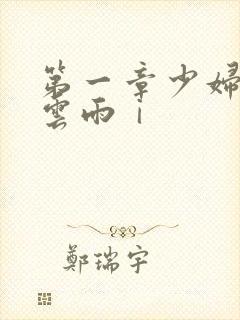 第一章少婦
雲雨|
鄭瑞宇